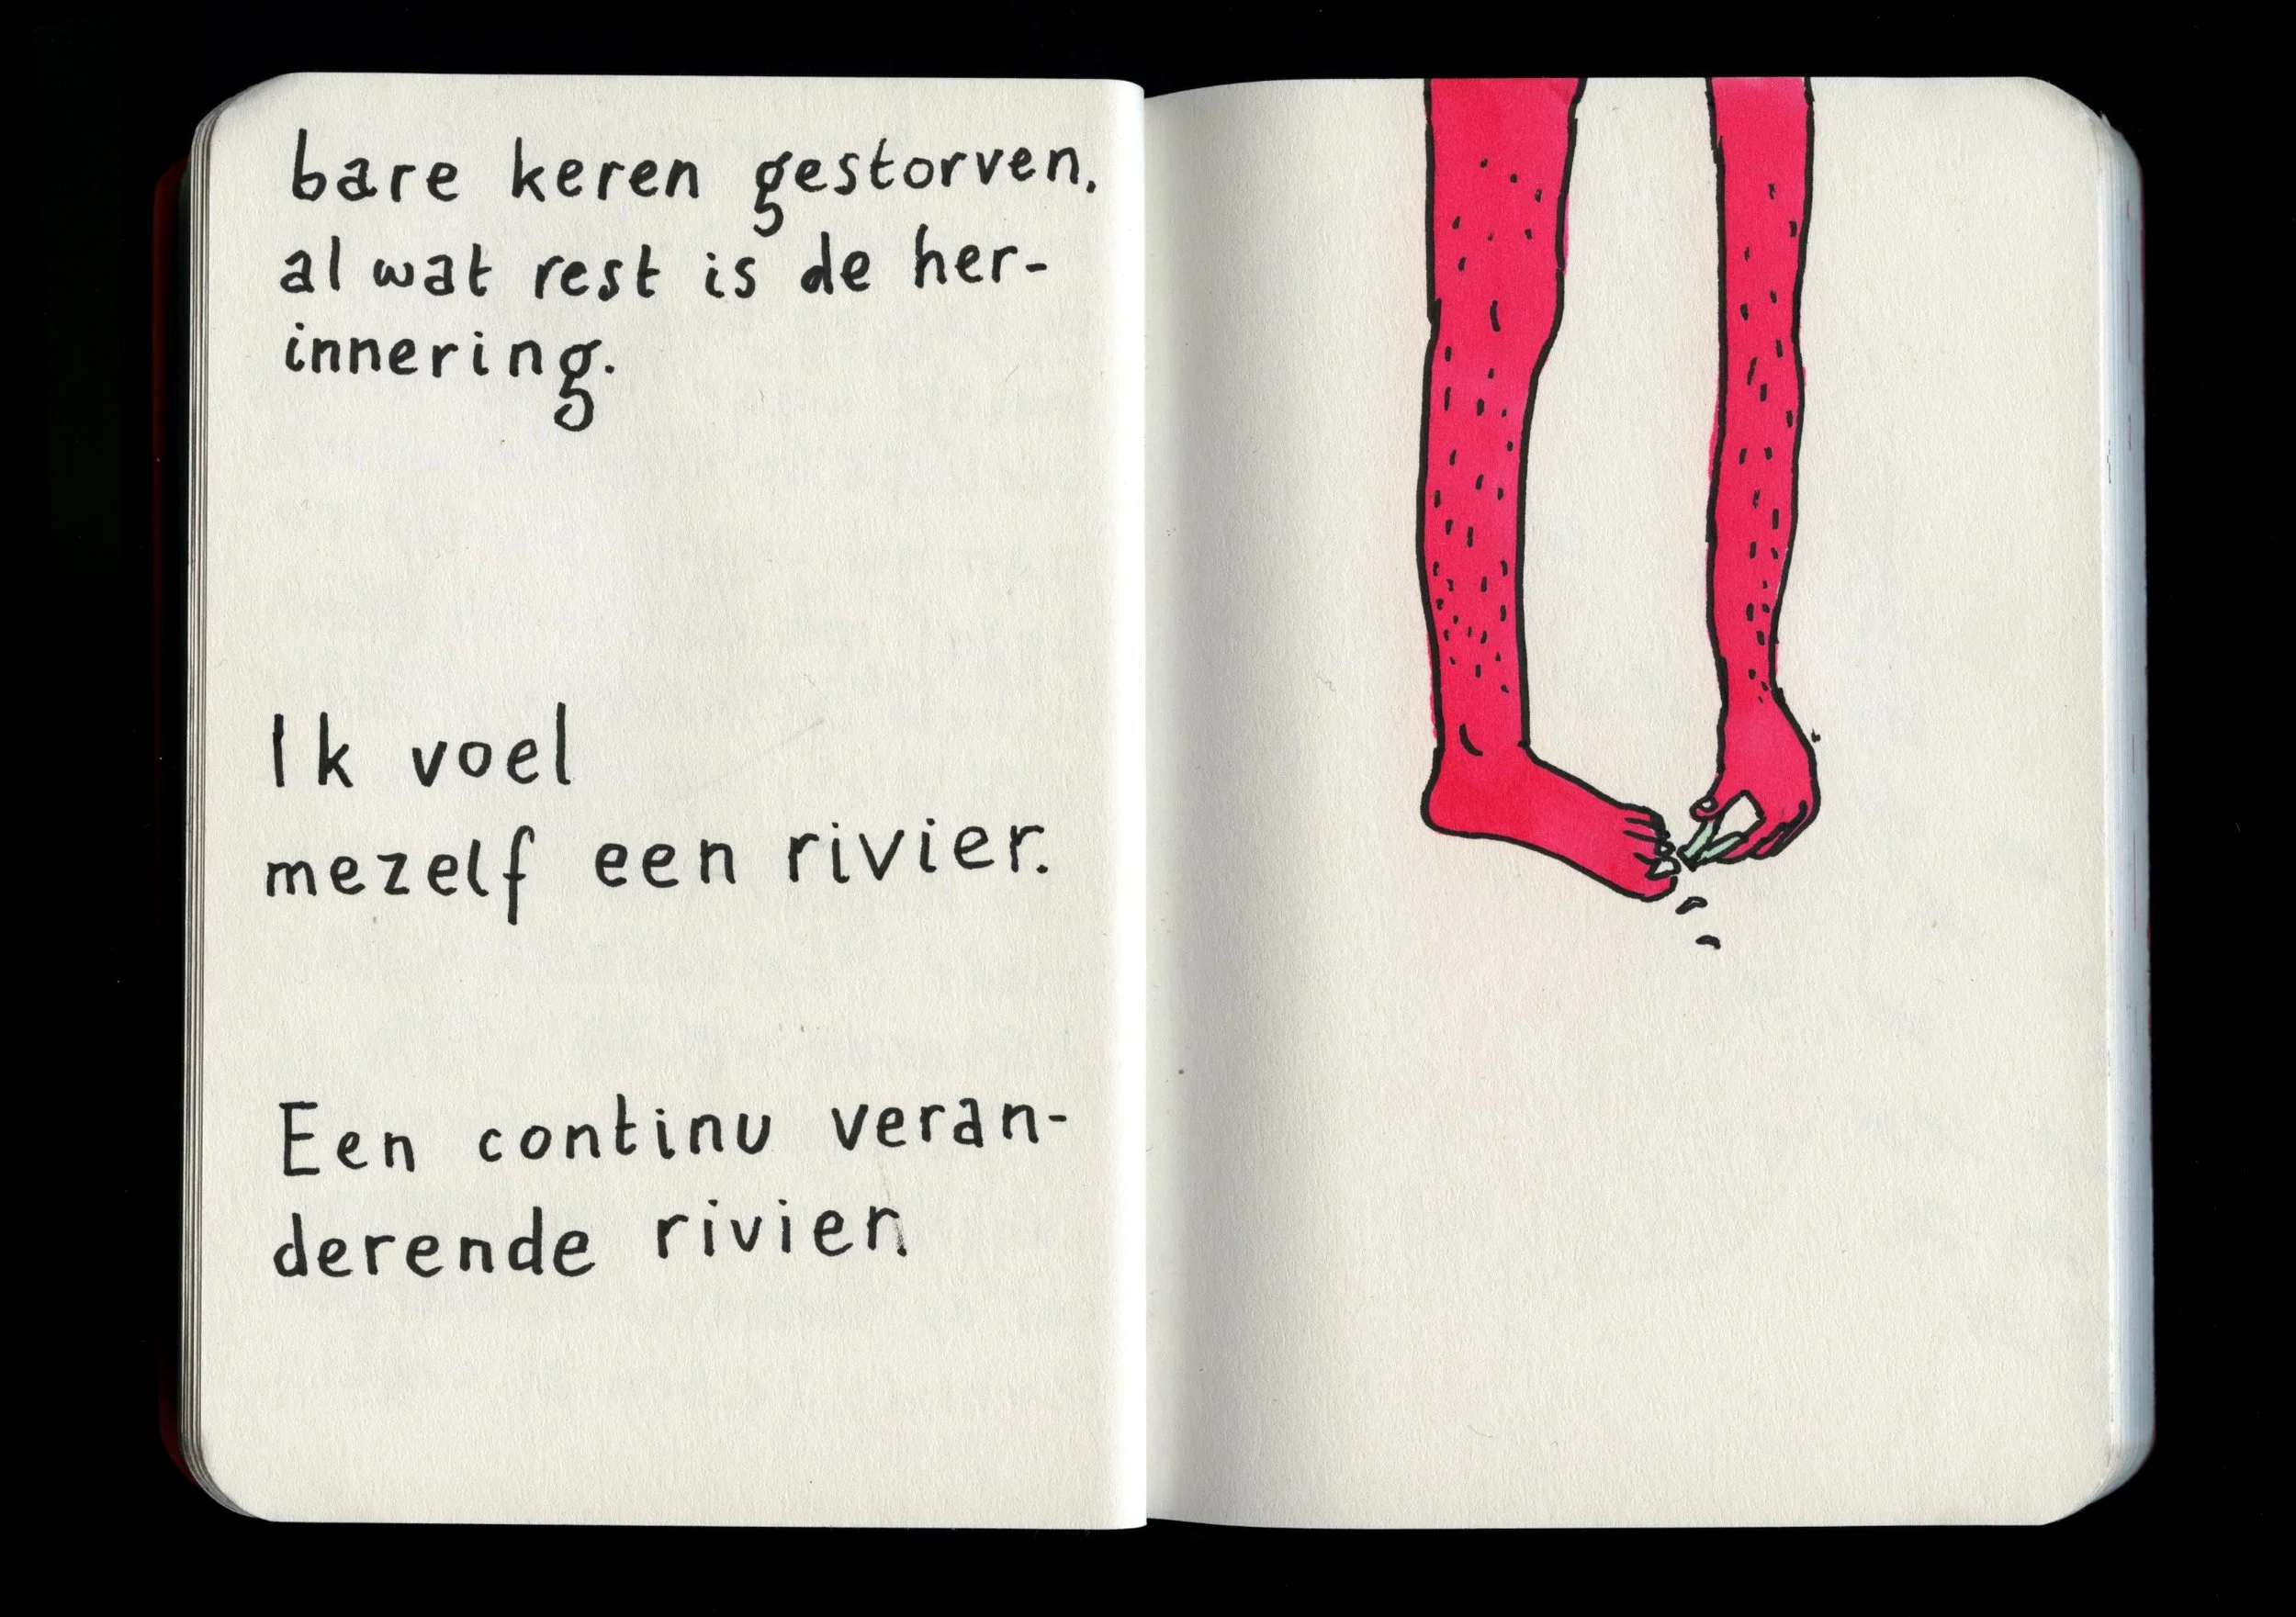 bare keren gestorven,
al wat rest is de her-
innering.
Ik voel
mezelf een rivier.
Een continu veran-
derende rivier.